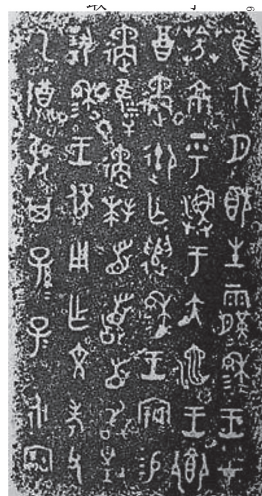 隹六月既生霸穆王才
京乎漁于大池王鄉
酉遹御亡遣穆王易
遹遹拜首稽首敢對
揚穆王休用乍文考父
乙尊彝其孫子永寶